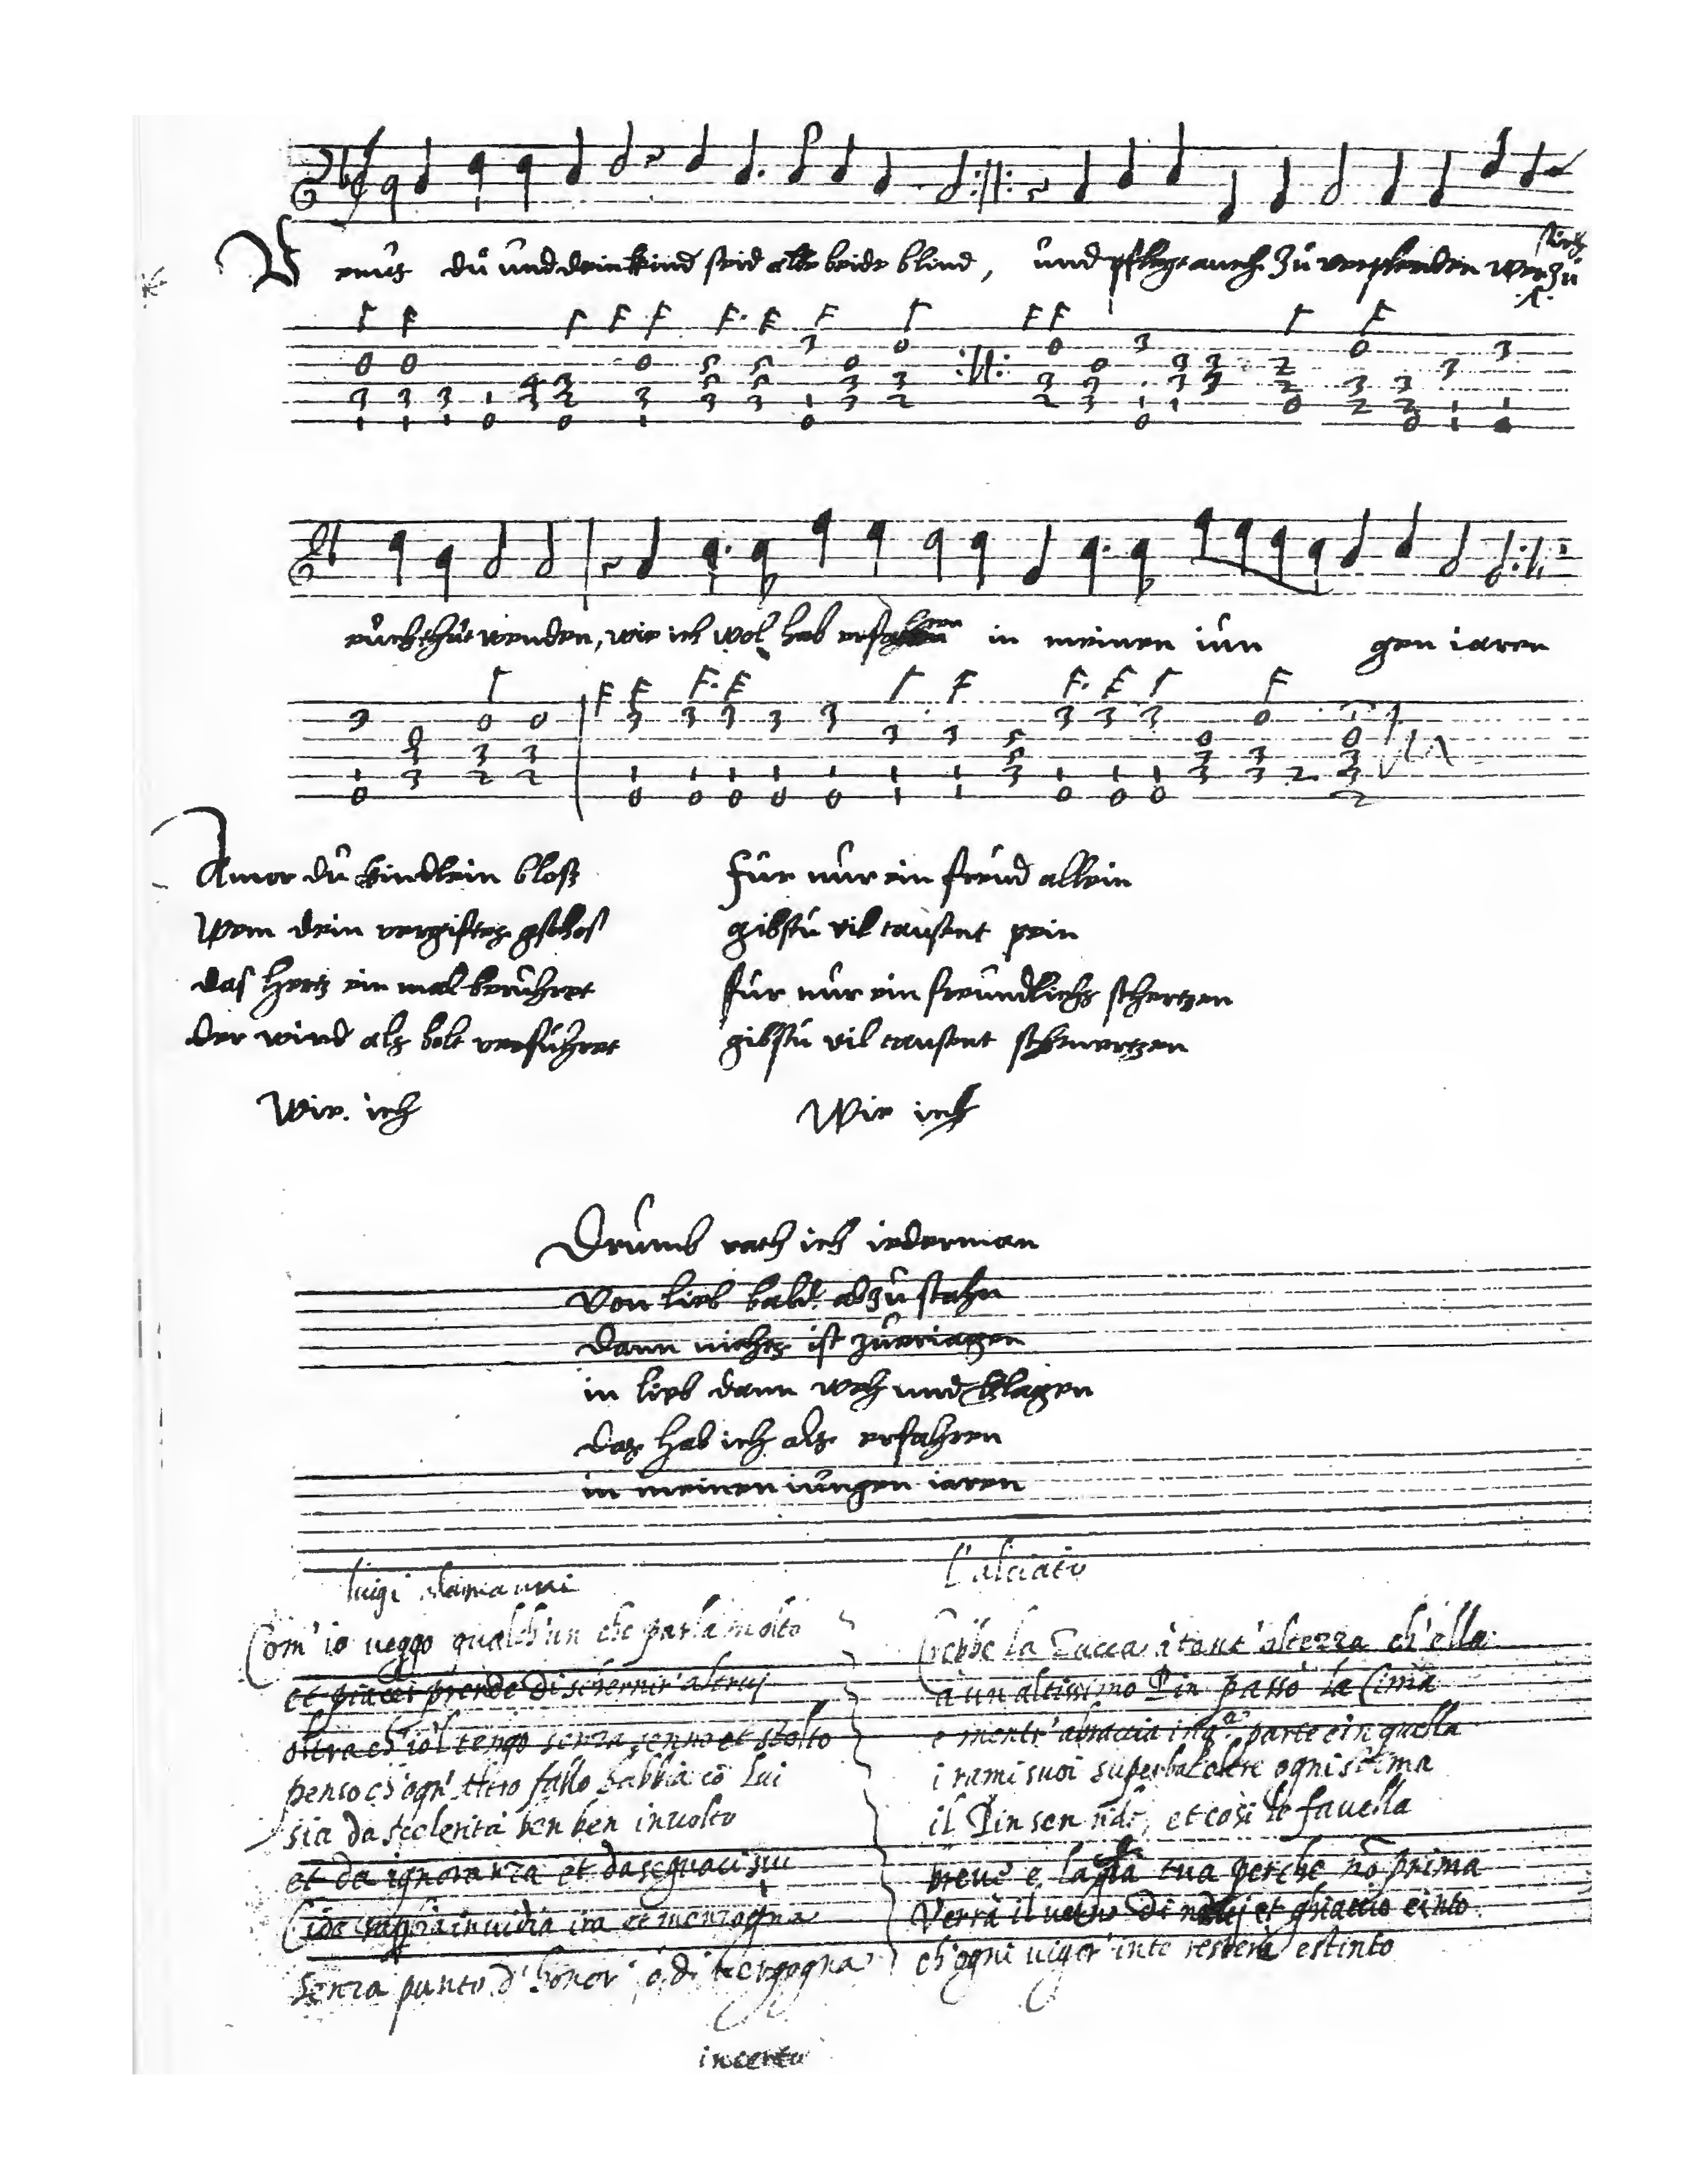 Venus du und dein kind seid alle beide blind, und pflegt auch zu verplenden wer sich zu
euch thut wenden, wie ich wol hab erfahren in meinen iun gen iaren
Amor du kindlein bloß
Wem dein vergiftes gschoß
das hertz ein mal berühret
der wird als bolt verführet
Wie ich
Für nur ein freud allein
gibstu vil tausent pein
für nur ein freundlichs schertzen
gibstu vil tausent schmertzen
Wie ich
Drumb rath ich iederman
von lieb bald abzustahn
dann nichts ist zueriagen
in lieb dann weh und klagen
das hab ich als erfahren
in meinen iungen iaren
luigi Alamanni
Com' io veggo qualch'un che parla molto
et piacer prende di schernir altrui
oltra ch'io'l tengo senza senno et stolto
penso ch'ogn' altro fallo habbia cō lui
sia da scelerità ben ben involto
et da ignoranza et da seguaci sui
invidia ira et menzogna
senza punto d'honor ò di vergogna
L'alciato
Crebbe la Zucca à tant' altezza ch'ella
à un altissimo Pin passò la cima
e mentr' abraccia in q.a parte e in quella
i rami suoi superba oltre ogni stima
il Pin sen ride, et così le favella
breve è la gl̃a tua perche nō prima
Verrà il verno di nevi et ghiaccio cinto
ch'ogni vigor' in te resterà estinto
incerto